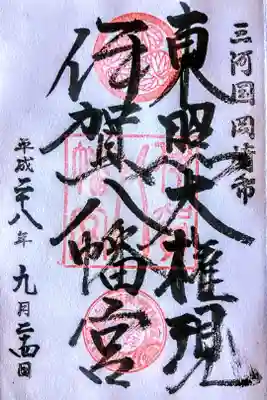 三河国岡崎市
東照大権現
伊賀八幡宮
平成二十八年九月二十四日